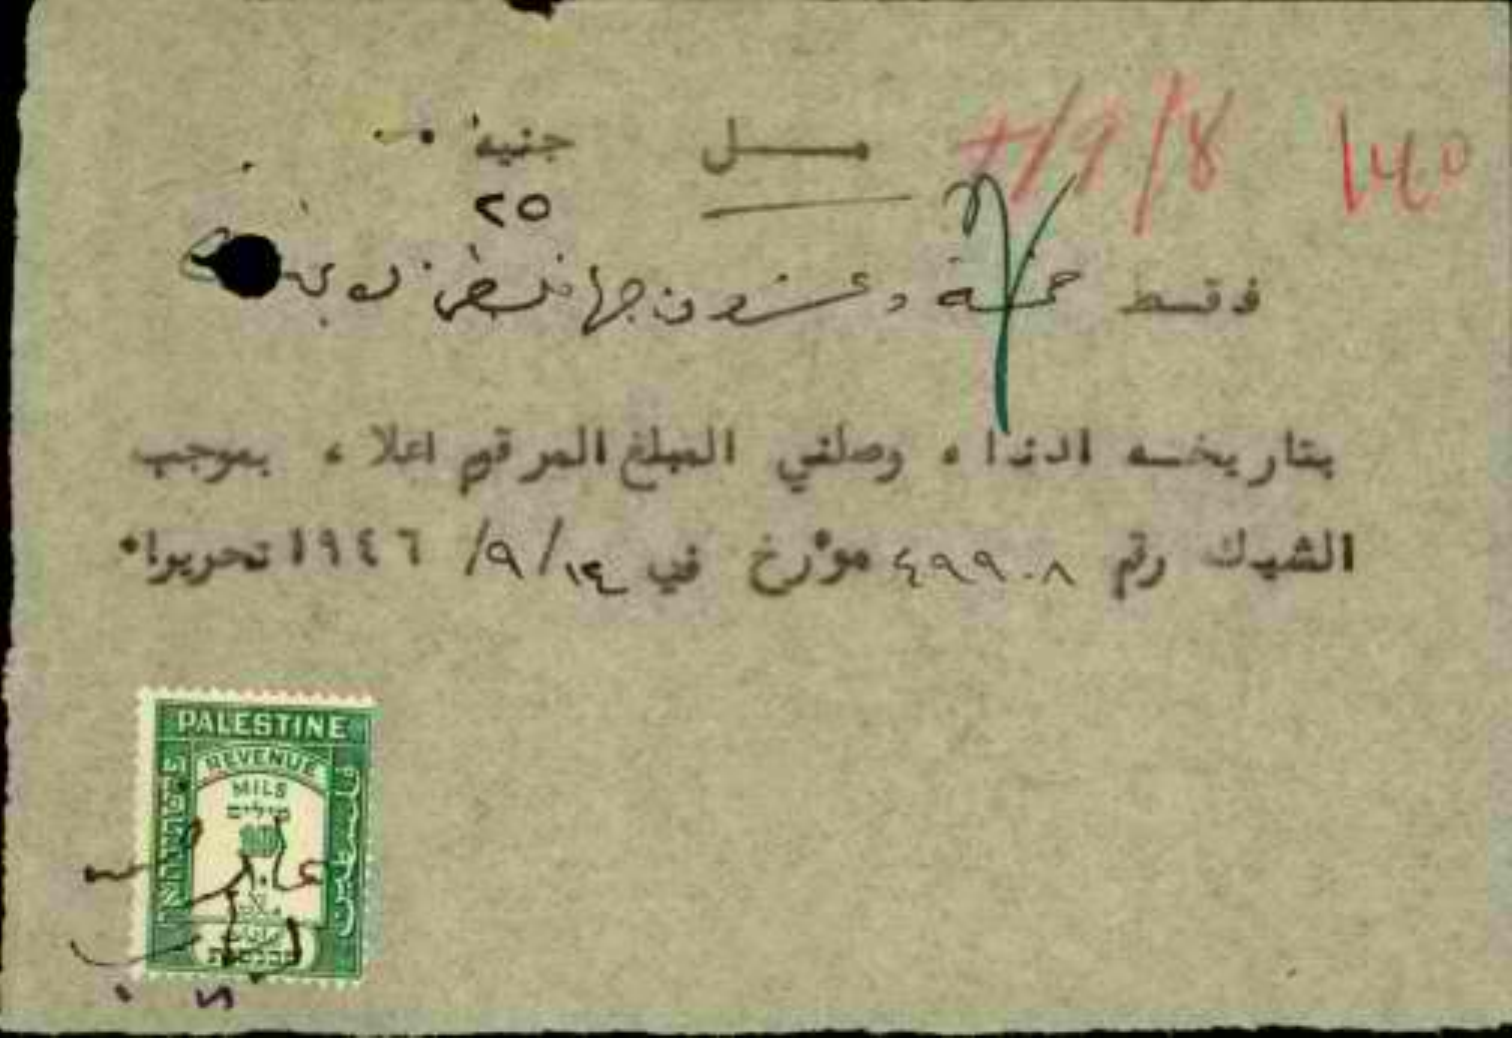 7/9/8
مــل جنيه
٢٥
فقط خمسة وعشرون جنيها فلسطينيا
بتاريخه ادناه وصلني المبلغ المرقوم اعلاه بموجب
الشيك رقم ٤٩٩٠٨ مؤرخ في ١٤/٩/ ١٩٤٦ تحريرا٠
PALESTINE
REVENUE
MILS
מילים
10
فلسطين